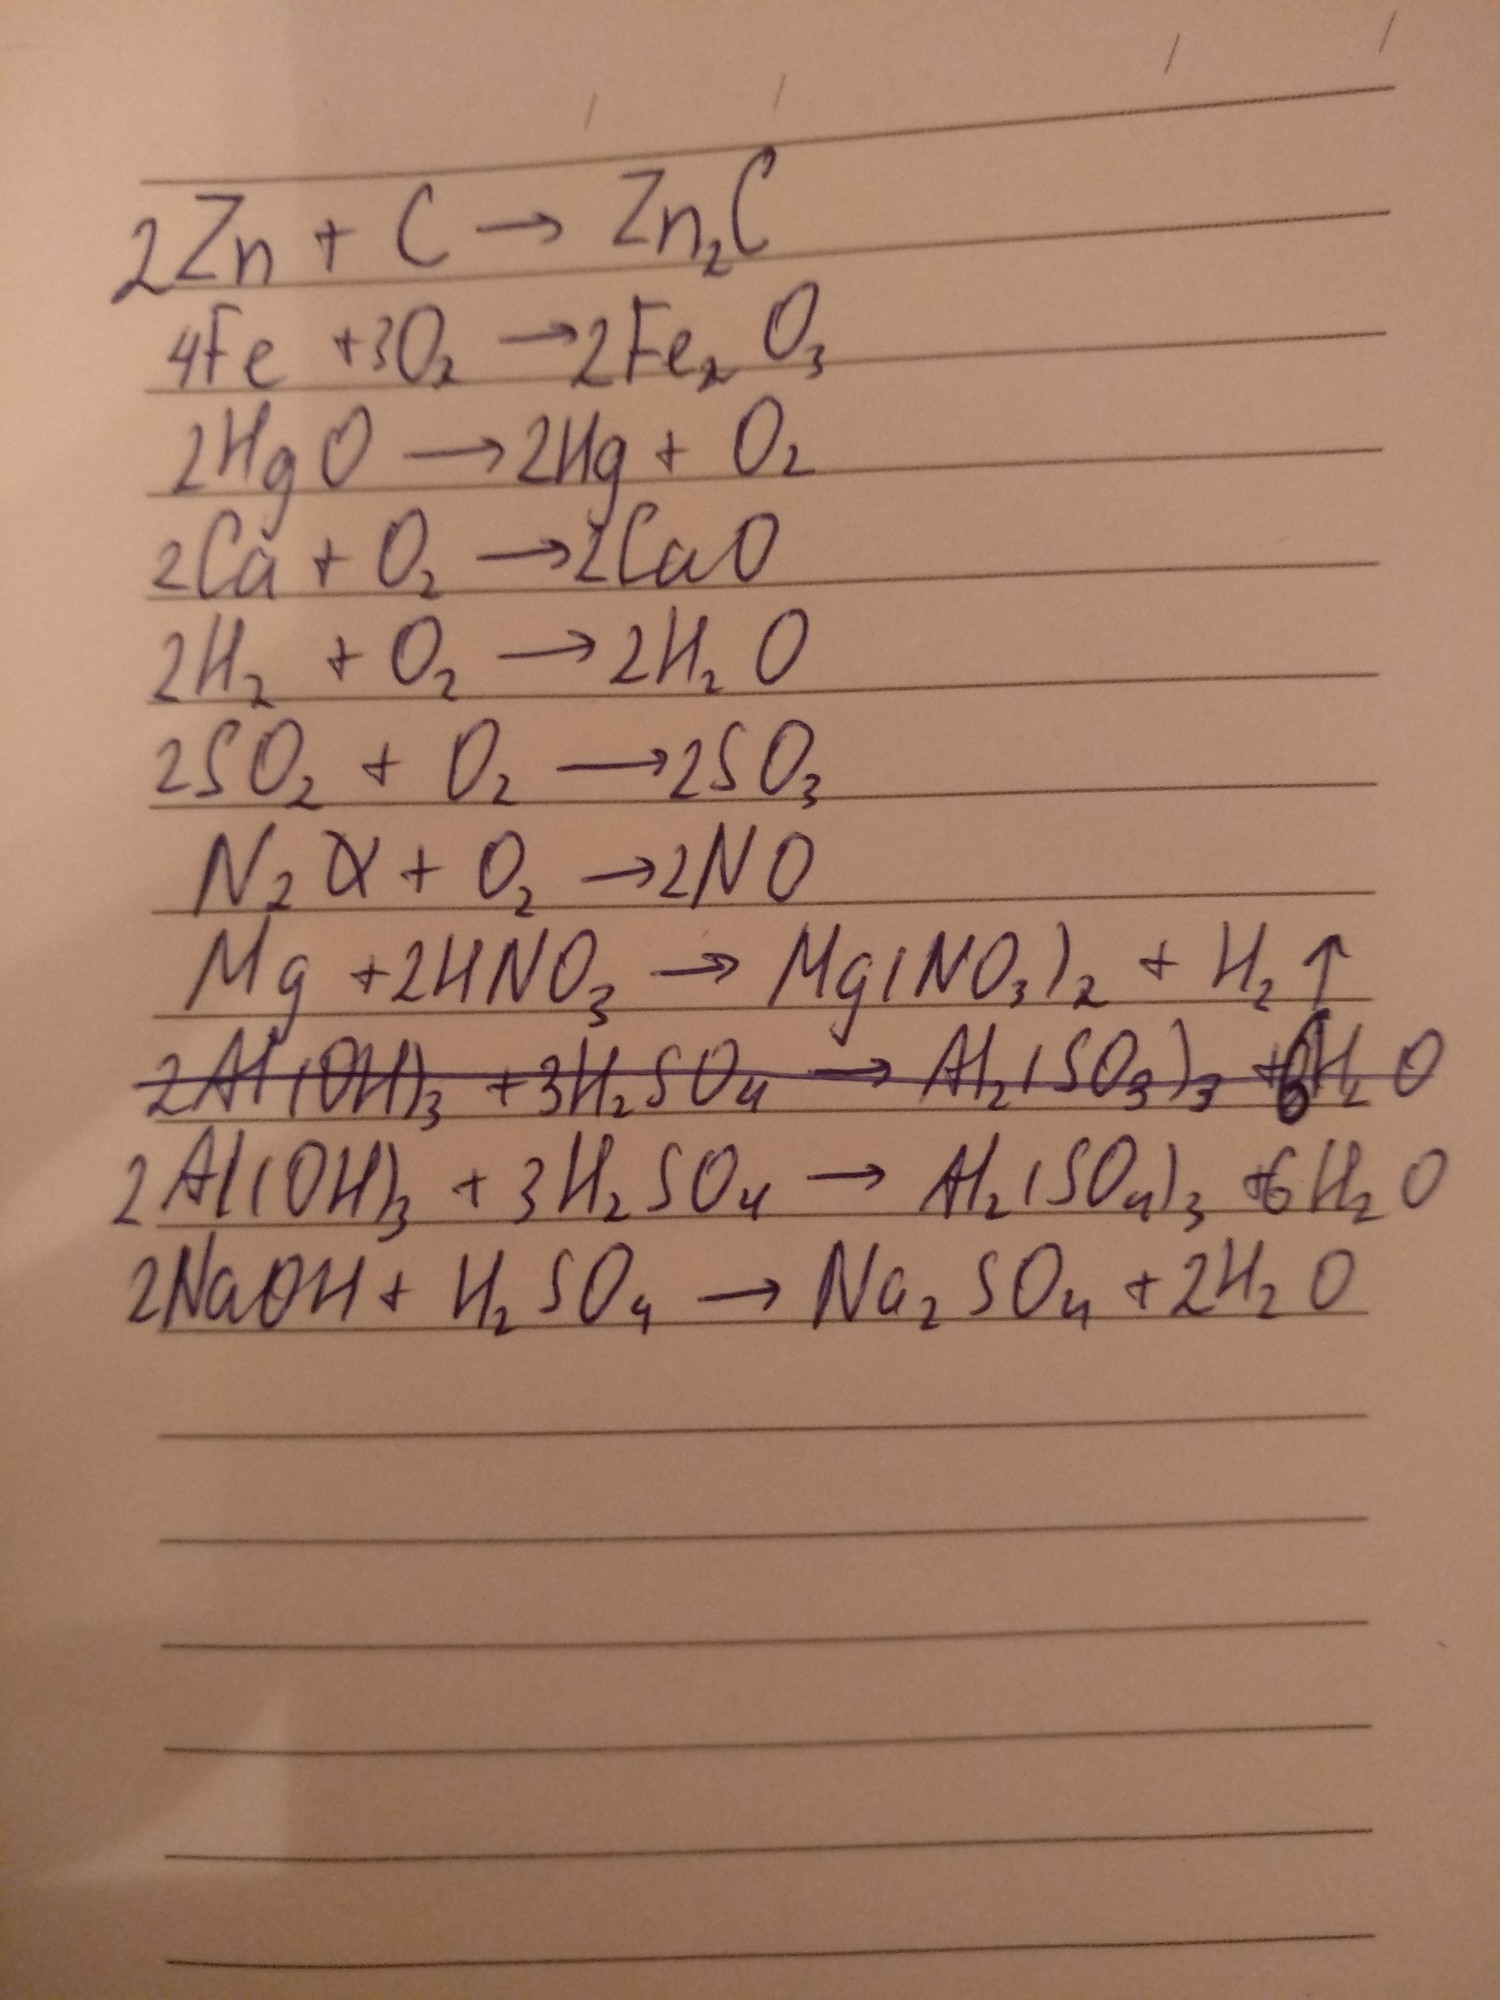 2Zn + C → Zn₂C
4Fe +3O₂ → 2Fe₂O₃
2HgO → 2Hg + O₂
2Ca + O₂ → 2CaO
2H₂ + O₂ → 2H₂O
2SO₂ + O₂ → 2SO₃
N₂ + O₂ → 2NO
Mg +2HNO₃ → Mg(NO₃)₂ + H₂↑
2Al(OH)₃ +3H₂SO₄ → Al₂(SO₃)₃ +6H₂O
2Al(OH)₃ + 3H₂SO₄ → Al₂(SO₄)₃ +6H₂O
2NaOH + H₂SO₄ → Na₂SO₄ +2H₂O